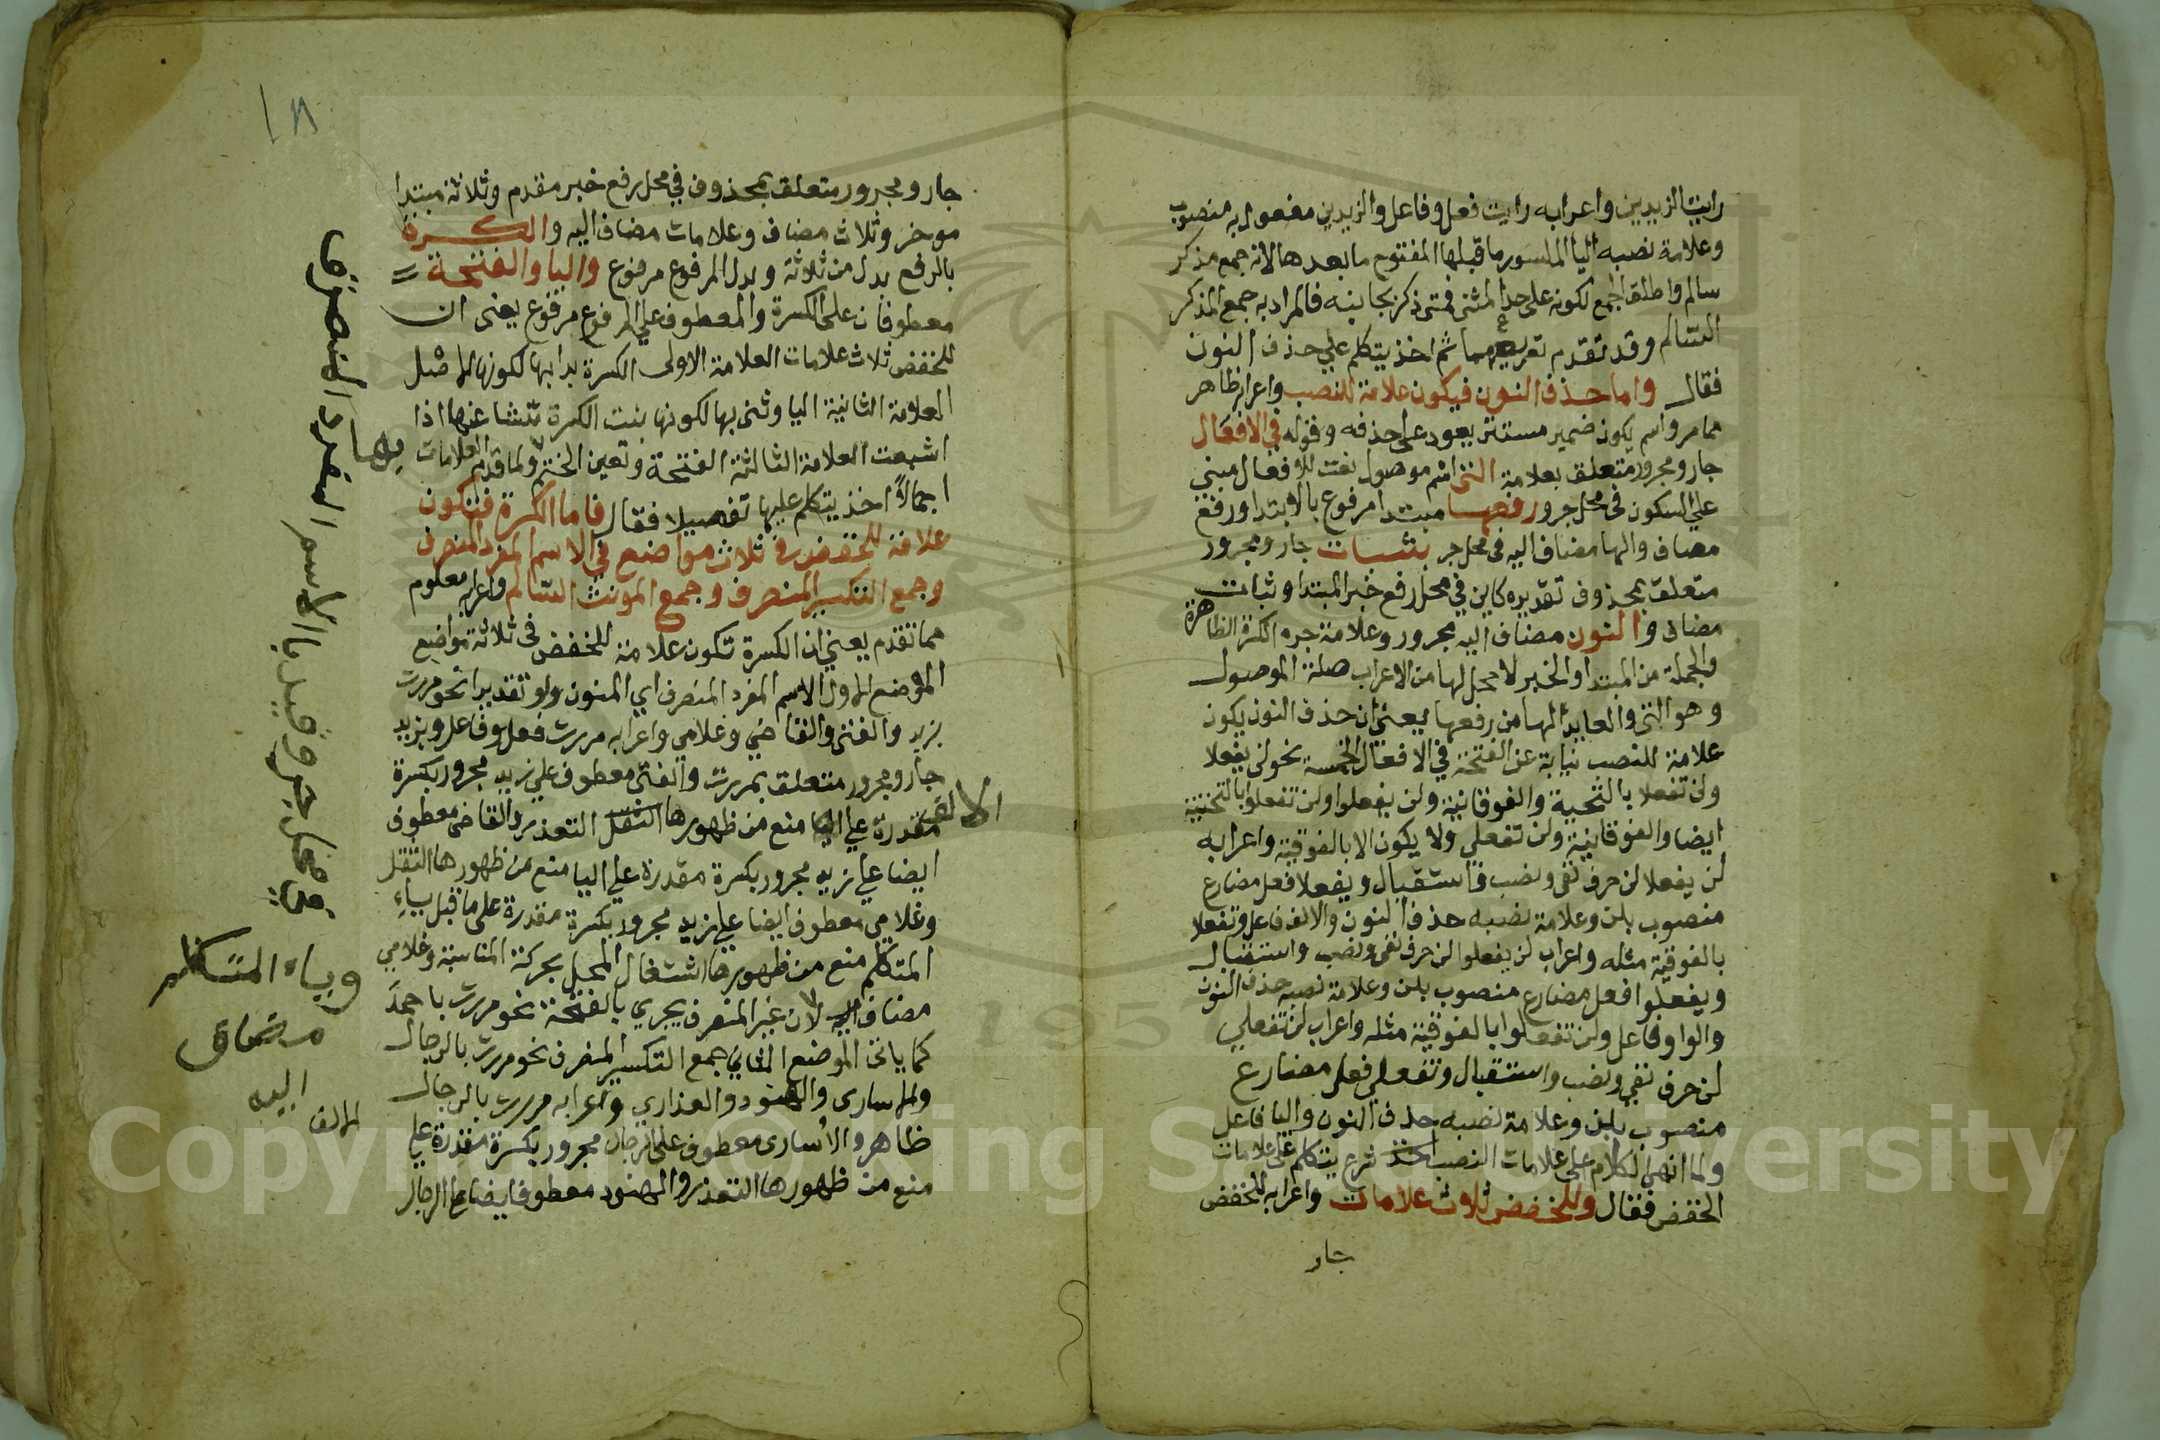 رايت الزيدين واعرابه رايت فعل وفاعل والزيدين مفعول به منصوب
وعلامة نصبه اليا المكسور ما قبلها المفتوح ما بعدها لانه جمع مذكر
سالم واطلق الجمع لكونه على حد المثنى فمتى ذكر بجانبه فالمراد به جمع المذكر
السالم وقد تقدم تعريفهما ثم اخذ يتكلم علي حذف النون
فقال واما حذف النون فيكون علامة للنصب واعرابه ظاهر
مما مر واسم يكون ضمير مستتر يعود على حذفه وقوله في الافعال
جار ومجرور متعلق بعلامة التي اسم موصول نعت للافعال مبني
علي السكون في محل جر ورفعها مبتدا مرفوع بالابتدا ورفع
مضاف والها مضاف اليه في محل جر بثبات جار ومجرور
متعلق بمحذوف تقديره كاين في محل رفع خبر المبتدا وثبات
مضاف والنون مضاف اليه مجرور وعلامة جره الكسرة الظاهرة
والجملة من المبتدا والخبر لا محل لها من الاعراب صلة الموصول
وهو التي والعايد الها من رفعها يعني ان حذف النون يكون
علامة للنصب نيابة عن الفتحة في الافعال الخمسة نحو لن يفعلا
ولن تفعلا بالتحية والفوقانية ولن يفعلوا ولن تفعلوا بالتحتية
ايضا والفوقانية ولن تفعلي ولا يكون الا بالفوقية واعرابه
لن يفعلا لن حرف نفي ونصب واستقبال ويفعلا فعل مضارع
منصوب بلن وعلامة نصبه حذف النون والالف فاعل وتفعلا
بالفوقية مثله واعراب لن يفعلوا لن حرف نفي ونصب واستقبال
ويفعلوا فعل مضارع منصوب بلن وعلامة نصبه حذف النون
والواو فاعل ولن تفعلوا بالفوقية مثله واعراب لن تفعلي
لن حرف نفي ونصب واستقبال وتفعلي فعل مضارع
منصوب بلن وعلامة نصبه حذف النون واليا فاعل
ولما انهى الكلام على علامات النصب اخذ شرع يتكلم على علامات
الخفض فقال وللخفض ثلاث علامات واعرابه للخفض
جار
١٨
جار ومجرور متعلق بمحذوف في محل رفع خبر مقدم وثلاثة مبتدا
موخر وثلاث مضاف وعلامات مضاف اليه والكسرة
بالرفع بدل من ثلاثة وبدل المرفوع مرفوع واليا والفتحة =
معطوفان على الكسرة والمعطوف علي المرفوع مرفوع يعني ان
للخفض ثلاث علامات العلامة الاولى الكسرة بدا بها لكونها الاصل
العلامة الثانية اليا وثنى بها لكونها بنت الكسرة تنشا عنها اذا
اشبعت العلامة الثالثة الفتحة وتعين الختم بها ولما قدم العلامات
اجمالاً اخذ يتكلم عليها تفصيلا فقال فاما الكسرة فتكون
علامة للخفض في ثلاث مواضع في الاسم المفرد المنصرف
وجمع التكسير المنصرف وجمع المونث السالم واعرابه معلوم
مما تقدم يعني ان الكسرة تكون علامة للخفض في ثلاثة مواضع
الموضع الاول الاسم المفرد المنصرف اي المنون ولو تقديرا نحو مررت
بزيد والفتى والقاضي وغلامي واعرابه مررت فعل وفاعل وبزيد
جار ومجرور متعلق بمررت والفتى معطوف علي زيد مجرور بكسرة
مقدرة علي الالف منع من ظهورها التعذر والقاضي معطوف
ايضا علي زيد مجرور بكسرة مقدرة علي اليا منع من ظهورها الثقل
وغلامي معطوف ايضا علي زيد مجرور بكسرة مقدرة على ما قبل ياء
المتكلم منع من ظهورها اشتغال المحل بحركة المناسبة وغلامي
مضاف لان غير المنصرف يجري بالفتحة نحو مررت باحمد
كما ياتي الموضع الثاني جمع التكسير المنصرف نحو مررت بالرجال
والاسارى والهنود والعذاري واعرابه مررت بالرجال
ظاهر والأسارى معطوف على الرجال مجرور بكسرة مقدرة علي
منع من ظهورها التعذر والهنود معطوف ايضا علي الرجال
وياء المتكلم
مضاف
اليه
الالف
Copyright © King Saud University